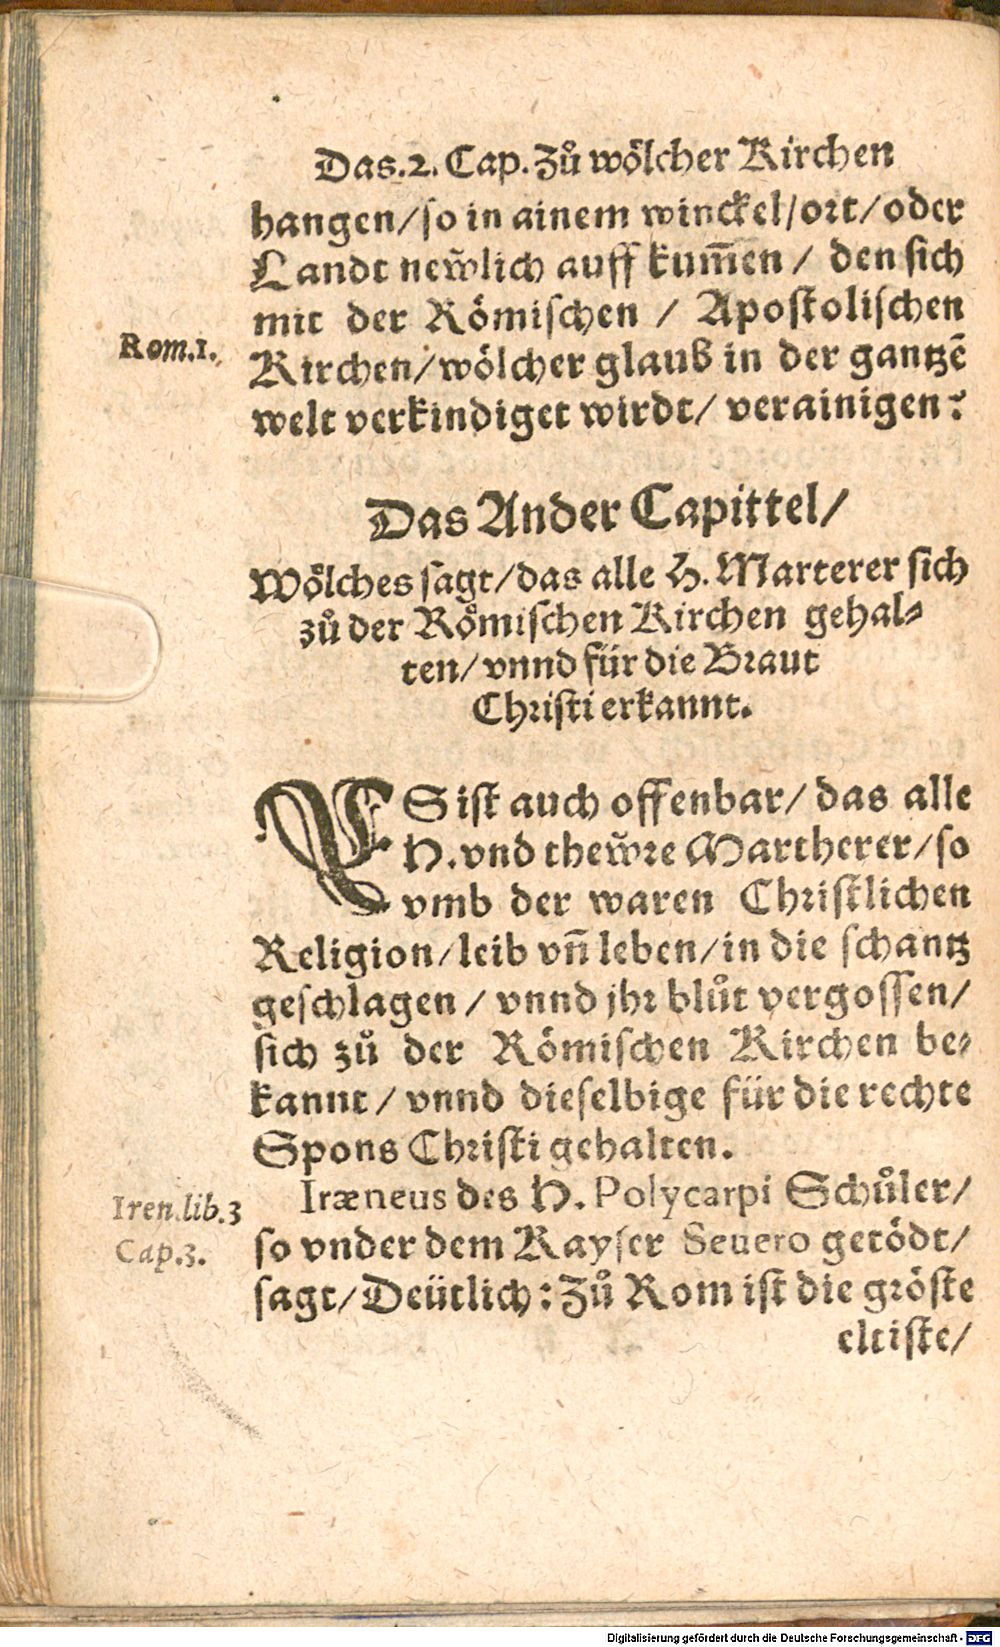 Das.2. Cap. Zů wölcher Kirchen
hangen/so in ainem winckel/ort/oder
Landt new̃lich auff kum̃en / den sich
mit der Römischen / Apostolischen
Rom.1.
Kirchen/wölcher glauß in der gantzẽ
welt verkindiget wirdt/ verainigen?
Das Ander Capittel/
Wölches sagt/das alle H. Marterer sich
zů der Römischen Kirchen gehal-
ten/vnnd für die Braut
Christi erkannt.
ES ist auch offenbar/ das alle
H. vnd thew̃re Martherer/so
vmb der waren Christlichen
Religion/leib vñ leben/in die schantz
geschlagen / vnnd jhr blůt vergossen/
sich zů der Römischen Kirchen be-
kannt / vnnd dieselbige für die rechte
Spons Christi gehalten.
Iren.lib.3
Cap.3.
Iræneus des H. Polycarpi Schůler/
so vnder dem Kayser Seuero getödt/
sagt/Deütlich: Zů Rom ist die gröste
eltiste/
Digitalisierung gefördert durch die Deutsche Forschungsgemeinschaft - DFG